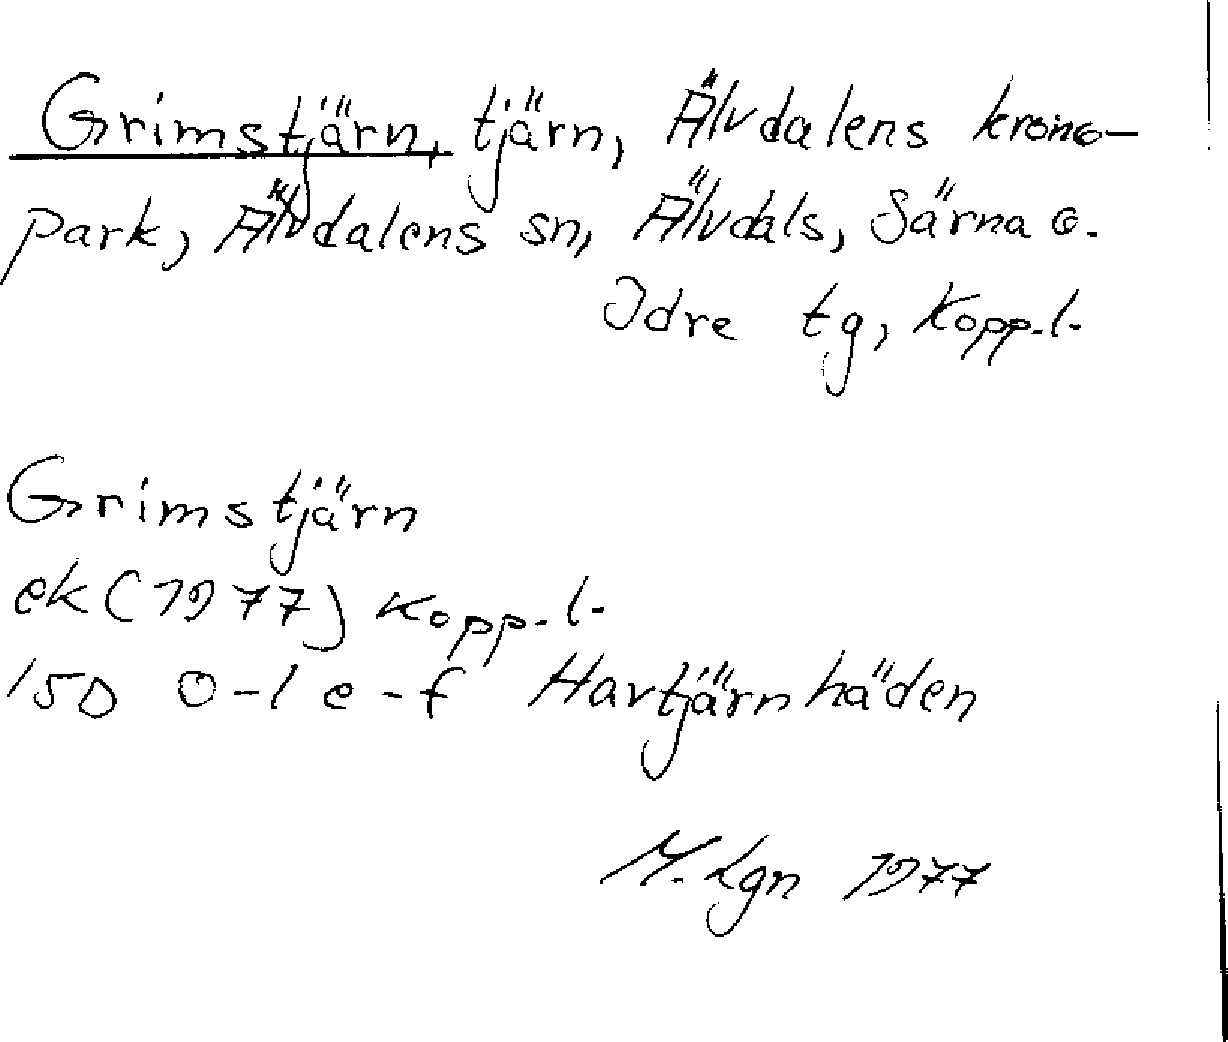 Grimstjärn, tjärn, Älvdalens krono-
park, Älvdalens sn, Älvdals, Särna o.
Idre tg, Kopp.l.
Grimstjärn
ek (1977) Kopp.l.
15D 0-1 e-f Havtjärnhäden
M. Lgn 1977